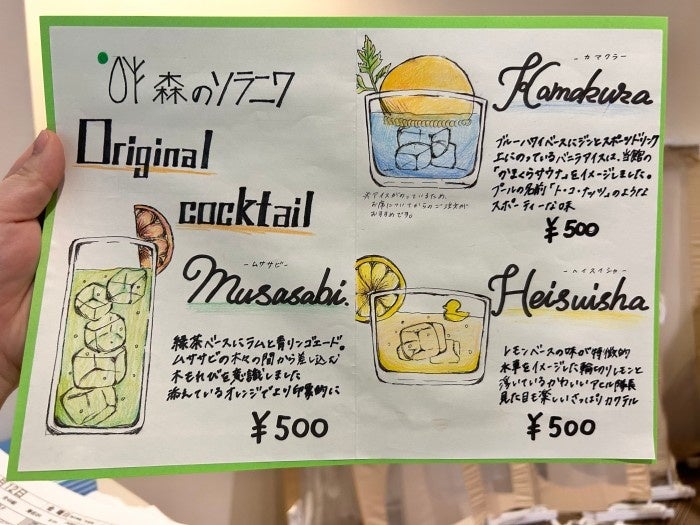 森のソラニワ
Original
cocktail
-ムササビ-
Musasabi.
緑茶ベースにラムと青リンゴエード。
ムササビの木々の間から差し込む
木もれびを意識しました
添えているオレンジでより印象的に
¥500
-カマクラ-
Kamakura
ブルーハワイベースにジンとスポーツドリンク
上にのっているバニラアイスは、当館の
「かまくらサウナ」をイメージしました。
プールの名前「ト・コ・ナッツ」のような
スポーティーな味
¥500
※アイスがのっているため、
お席についてからのご注文が
おすすめです。
-ヘイスイシャ-
Heisuisha
レモンベースの味が特徴的
水車をイメージした輪切りレモンと
浮いているかわいいアヒル隊長
見た目も楽しいさっぱりカクテル
¥500
12日